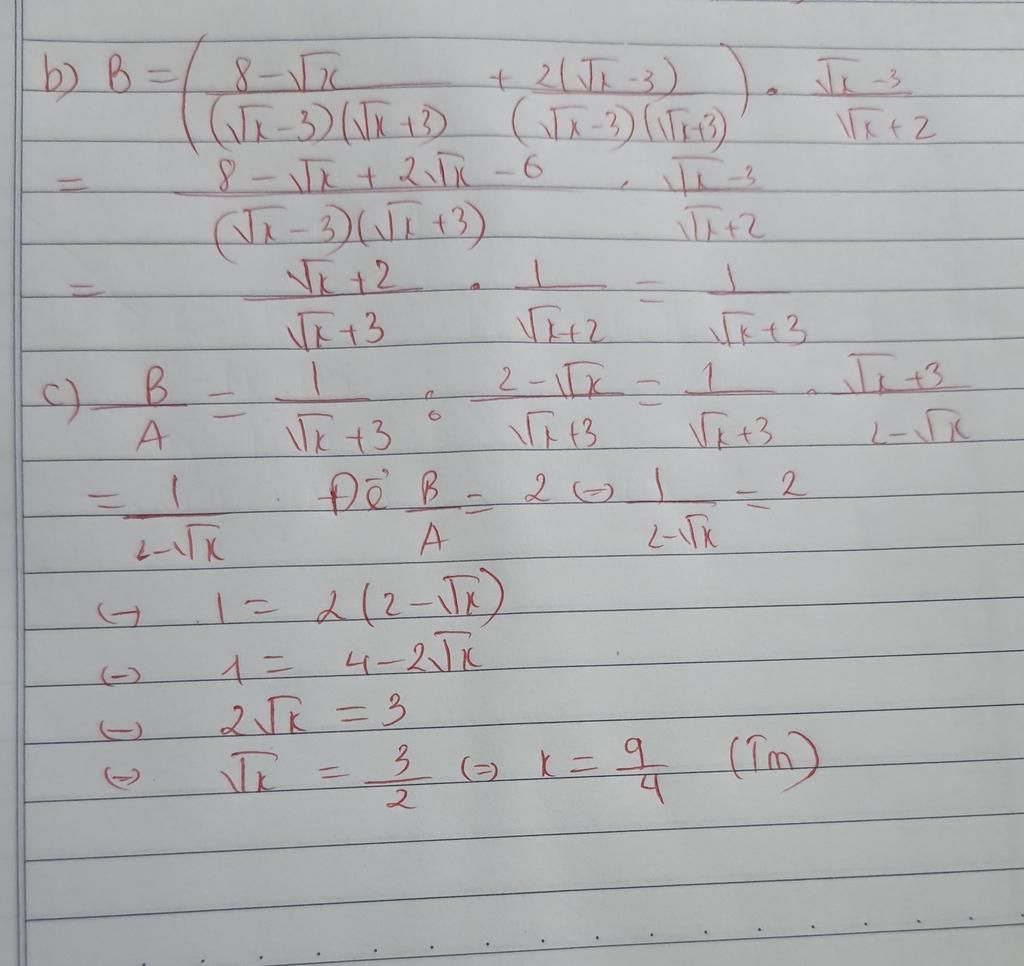 b) B = ( (8 - √x)/((√x - 3)(√x + 3)) + (2(√x - 3))/((√x - 3)(√x + 3)) ) . (√x - 3)/(√x + 2)
= (8 - √x + 2√x - 6)/((√x - 3)(√x + 3)) . (√x - 3)/(√x + 2)
= (√x + 2)/(√x + 3) . 1/(√x + 2) = 1/(√x + 3)
c) B/A = 1/(√x + 3) : (2 - √x)/(√x + 3) = 1/(√x + 3) . (√x + 3)/(2 - √x)
= 1/(2 - √x) . Để B/A = 2 ⇔ 1/(2 - √x) = 2
⇔ 1 = 2(2 - √x)
⇔ 1 = 4 - 2√x
⇔ 2√x = 3
⇔ √x = 3/2 ⇔ x = 9/4 (Tm)